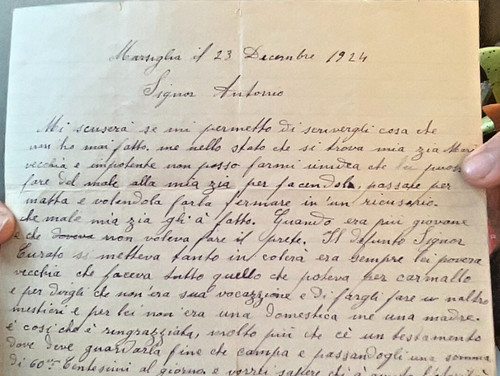 Marsiglia il 23 Decembre 1924
Signor Antonio
Mi scuserà se mi permetto di scrivergli cosa che
non ho mai fatto, me nello stato che si trova mia zia
vecchia e impotente non posso farmi un'idea che
fare del male alla mia zia per facendola, passare per
matta e volendola farla fermare in'un ricuverio.
che male mia zia gli à fatto. Quando era più giovane
è che doveva non voleva fare il prete. Il defunto Signor
Curato si metteva tanto in colera era sempre lei povera
vecchia che faceva tutto quello che poteva per carmallo
e per dirgli che non'era sua vocazzione e di fargli fare un altro
mestieri e per lei non'era una domestica mé una madre.
è così che è ringrazziata, molto più che c'è un testamento
dove deve guardarla fine che campa e passandogli una somma
di 60 Centesimi al giorno e vorrei sapere